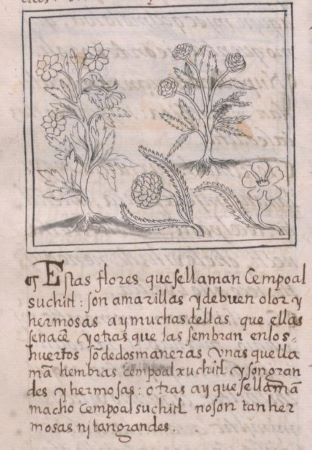 ¶ Estas flores que se llaman Cempoal
suchitl: son amarillas y de buen olor y
hermosas ay muchas dellas que ellas
se nace y otras que las sembran en los
huertos sō de dos maneras vnas que lla
mā hembras cempoalxuchitl y son gran
des y hermosas: otras ay que se llamā
macho Cempoalsuchitl no son tan her
mosas ni tan grandes.